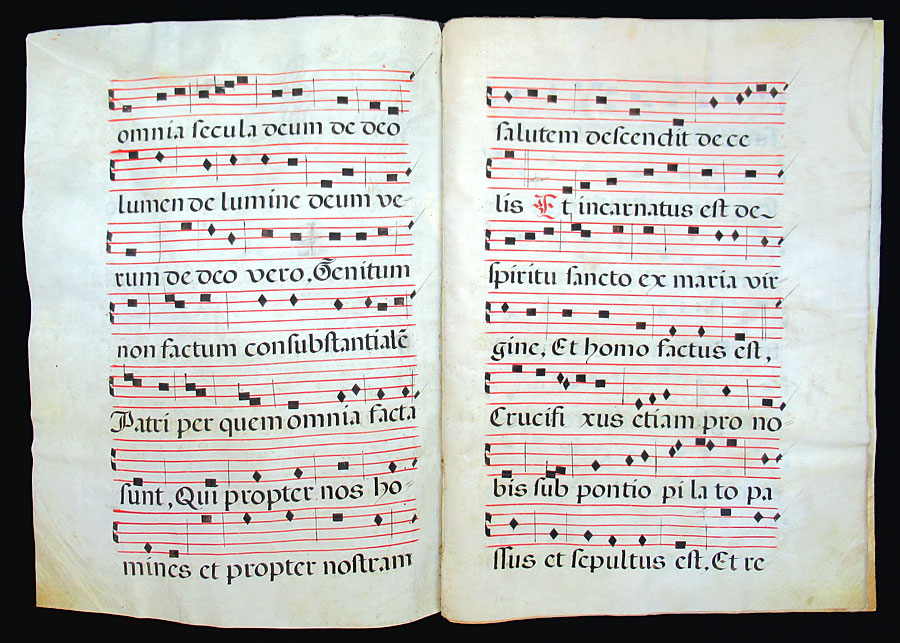 omnia secula deum de deo
lumen de lumine deum ve-
rum de deo vero. Genitum
non factum consubstantialē
Patri per quem omnia facta
sunt, Qui propter nos ho-
mines et propter nostram
salutem descendit de ce
lis Et incarnatus est de
spiritu sancto ex maria vir-
gine, Et homo factus est,
Crucifi xus etiam pro no
bis sub pontio pi la to pa
ssus et sepultus est, Et re